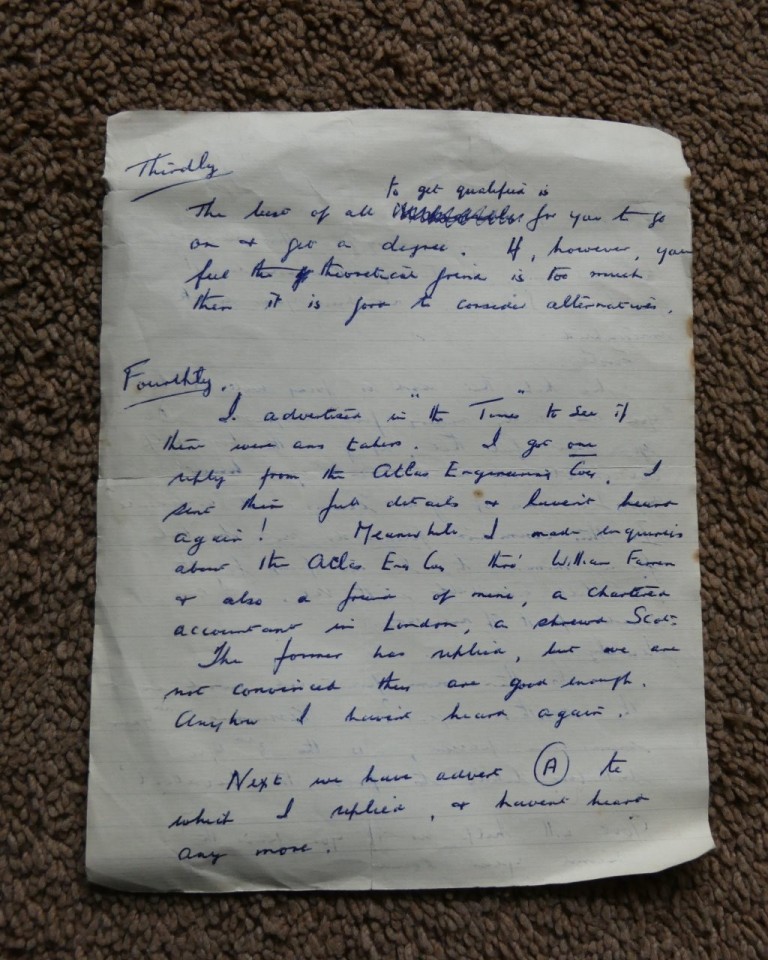 Thirdly
to get qualified is
The best of all for you to go
on & get a degree. If, however, you
feel the theoretical grind is too much
then it is good to consider alternatives.
Fourthly.
I advertised in "the Times" to see if
there were any takers. I got one
reply from the Atlas Engineering Coy. I
sent them full details & haven't heard
again! Meanwhile I made enquiries
about the Atlas Eng Coy thro' William Farren
& also a friend of mine, a chartered
accountant in London, a shrewd Scot.
The former has replied, but we are
not convinced they are good enough.
Anyhow I havent heard again.
Next we have advert (A) to
which I replied, & havent heard
any more.